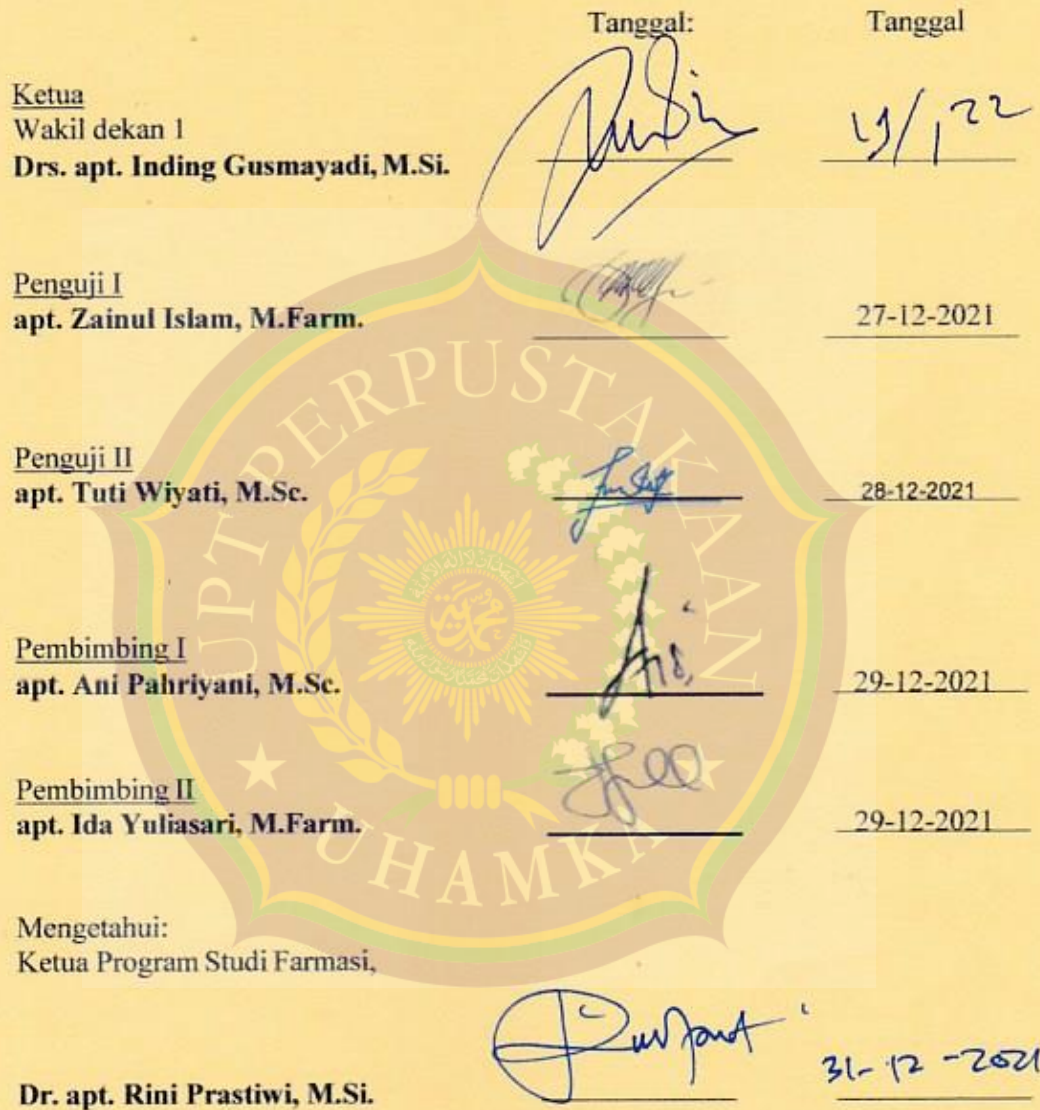 Tanggal: Tanggal
Ketua
Wakil dekan 1
Drs. apt. Inding Gusmayadi, M.Si. 19/1 22
Penguji I
apt. Zainul Islam, M.Farm. 27-12-2021
Penguji II
apt. Tuti Wiyati, M.Sc. 28-12-2021
Pembimbing I
apt. Ani Pahriyani, M.Sc. 29-12-2021
Pembimbing II
apt. Ida Yuliasari, M.Farm. 29-12-2021
Mengetahui:
Ketua Program Studi Farmasi,
Dr. apt. Rini Prastiwi, M.Si. 31-12-2021
UPT PERPUSTAKAAN
UHAMKA
محمدية